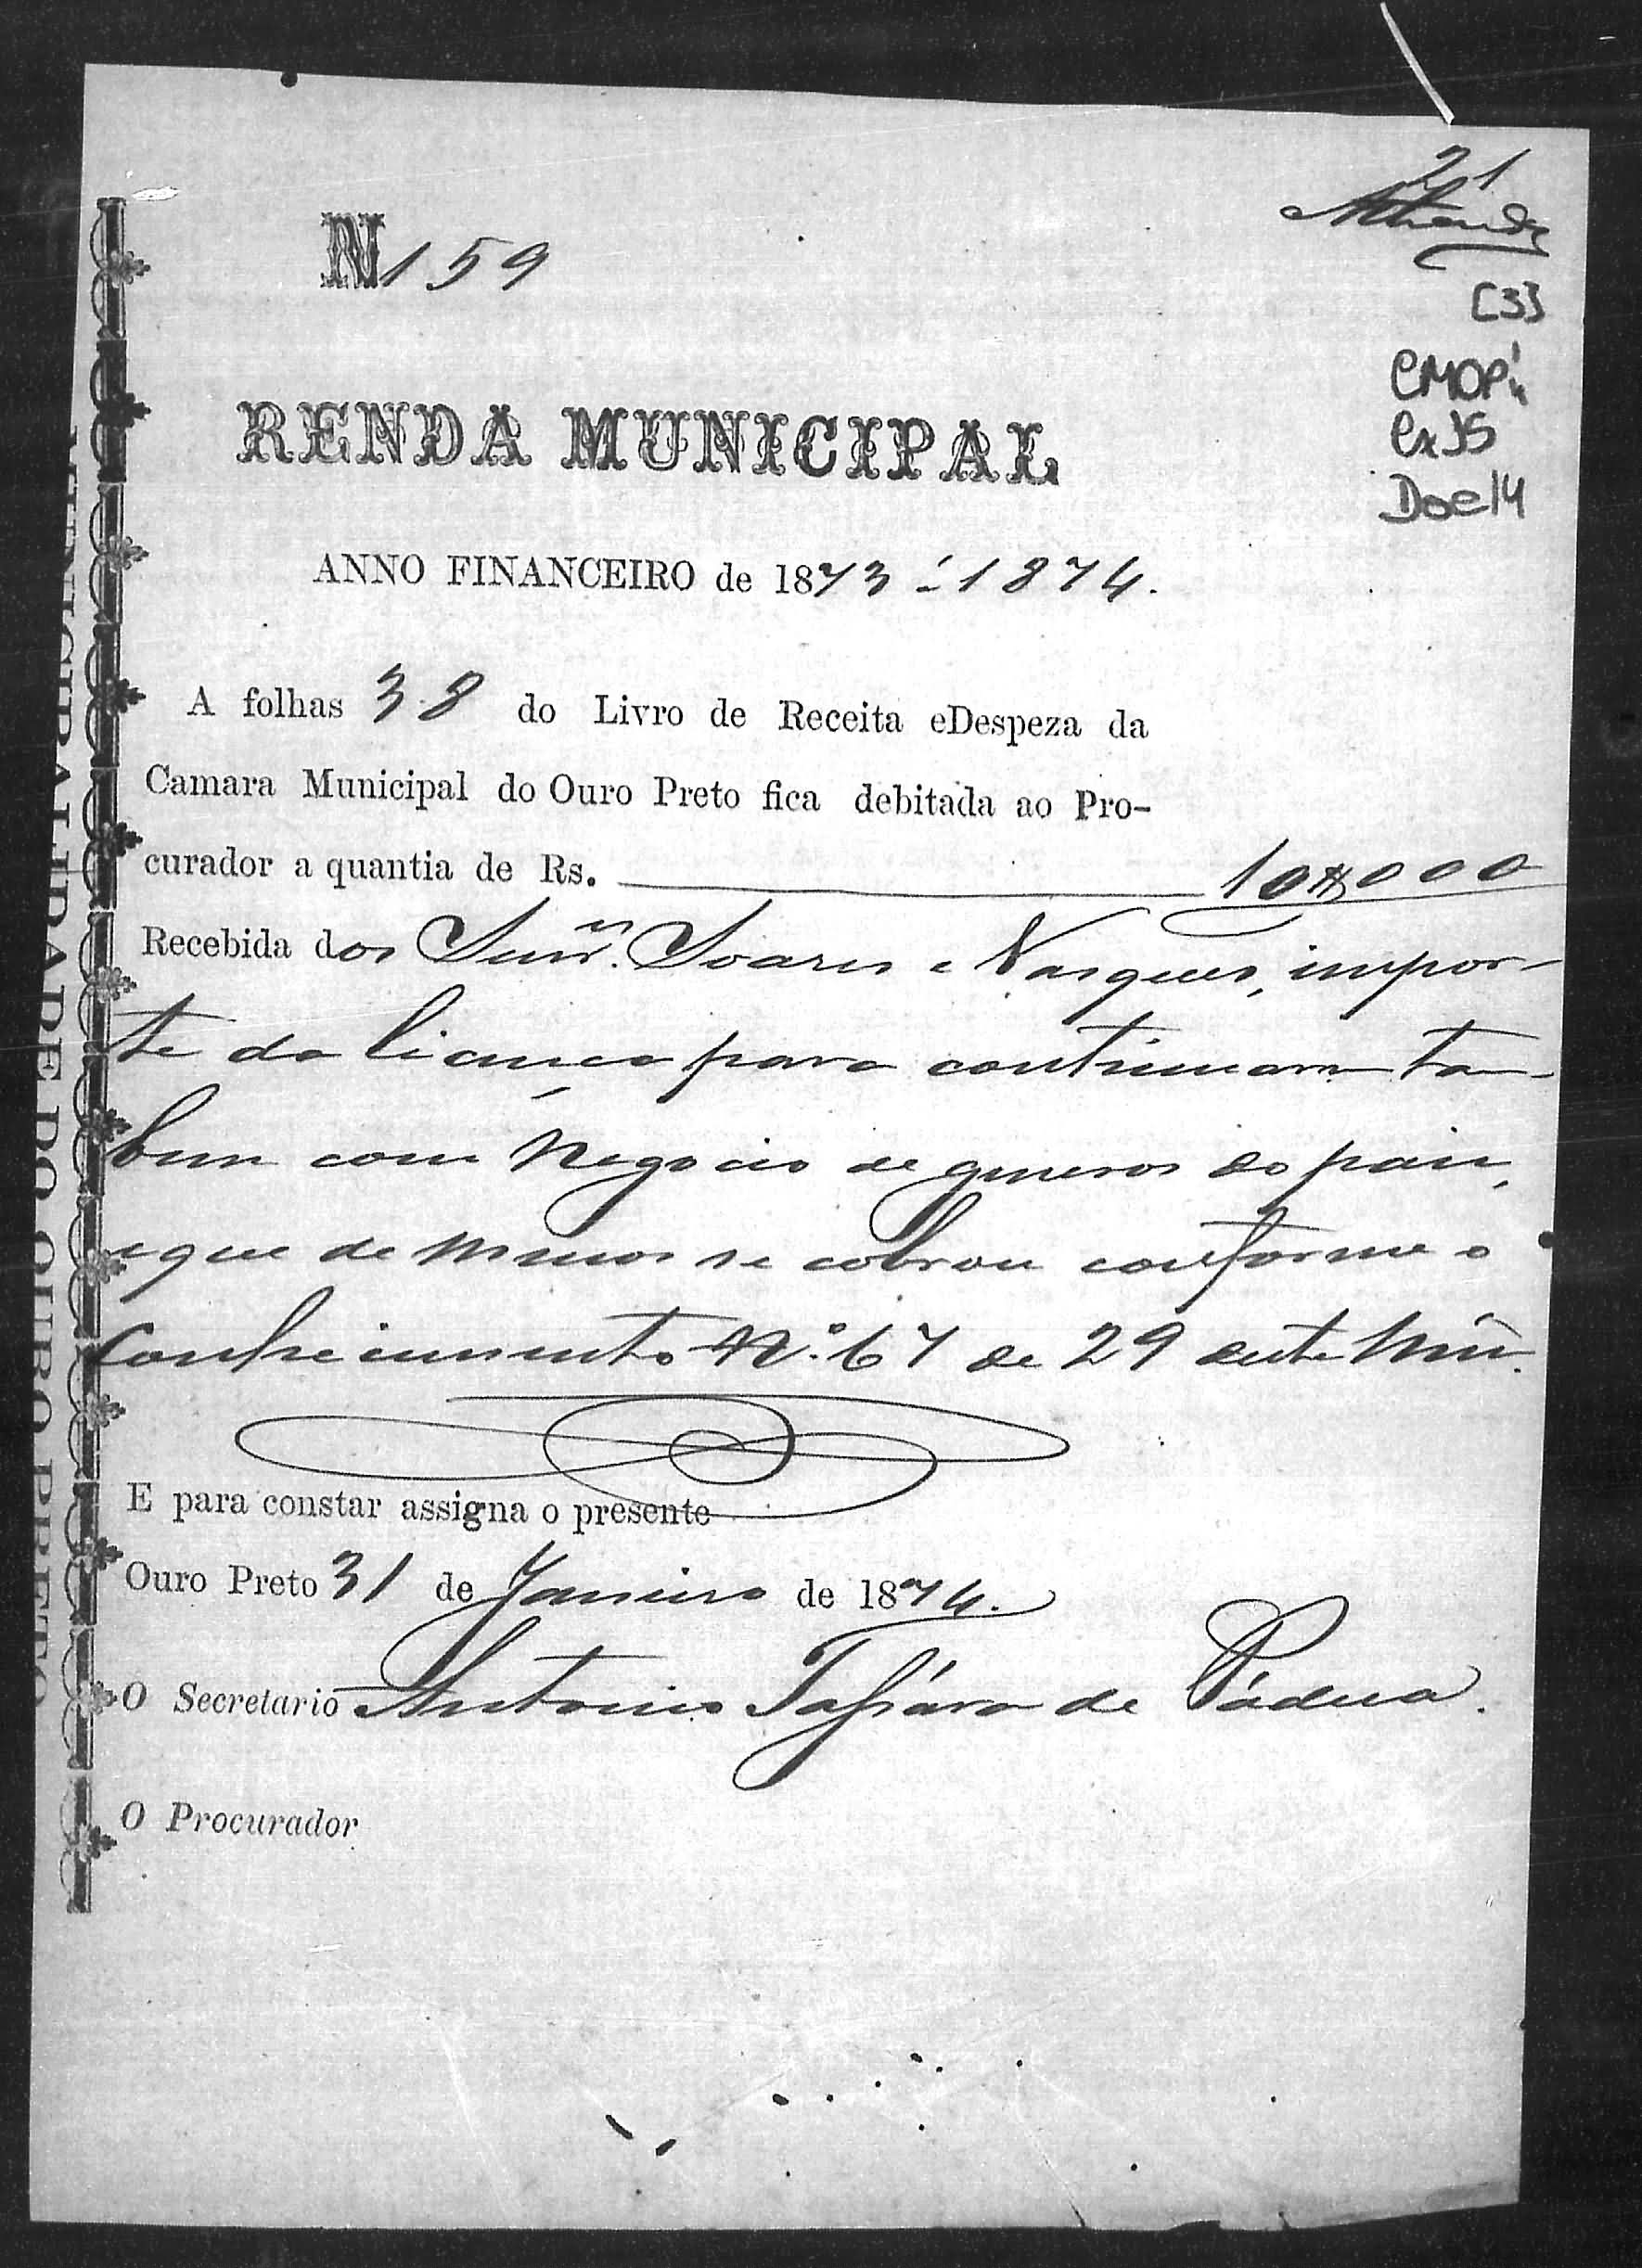 21
[3]
CMOP
Cx 15
Doc 14
N 159
RENDA MUNICIPAL
ANNO FINANCEIRO de 1873 - 1874.
A folhas 38 do Livro de Receita eDespeza da
Camara Municipal do Ouro Preto fica debitada ao Pro-
curador a quantia de Rs. 10$000
Recebida dos Senrs. Soares e Vasques, impor-
te da licença para continuarem tam-
bem com negocio de generos do paiz,
e que de menos se cobrou conforme o
Conhecimento N.º 67 de 29 deste Mez.
E para constar assigna o presente
Ouro Preto 31 de Janeiro de 1874.
O Secretario Antonio de Padua.
O Procurador
MUNICIPALIDADE DO OURO PRETO